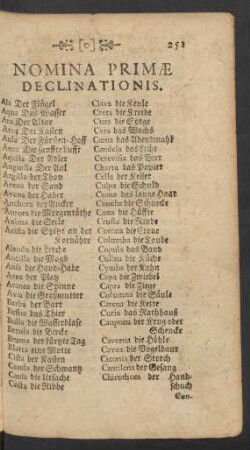 251
NOMINA PRIMÆ
DECLINATIONIS.
Ala Der Flügel
Aqua Das Wasser
Ara Der Altar
Arca Der Kasten
Aula Der Fürsten-Hoff
Aura Die sanfte Lufft
Aquila Der Adler
Anguilla Der Aal
Argilla der Thon
Arena der Sand
Avena der Haber
Anchora der Ancker
Aurora die Morgenröthe
Anima die Seele
Arista die Spitz an der
Kornähre
Alauda die Lerche
Ancilla die Magd
Ansa die Hand-Habe
Area der Platz
Aranea die Spinne
Avia die Großmutter
Barba der Bart
Bestia das Thier
Bulla die Wasserblase
Betula die Bircke
Bruma der kürtzte Tag
Blatta eine Motte
Cista der Kasten
Cauda der Schwantz
Causa die Ursache
Costa die Ribbe
Clava die Keule
Creta die Kreide
Cura die Sorge
Cera das Wachs
Cœna das Abendmahl
Candela das Licht
Cerevisia das Bier
Charta das Papier
Cella der Keller
Culpa die Schuld
Coma das lange Haar
Coxa die Hüffte
Crusta die Rinde
Corona die Crone
Columba die Taube
Copula das Band
Culina die Küche
Cymba der Kahn
Cepa die Zwiebel
Capra die Ziege
Columna die Säule
Catena die Kette
Curia das Rathhauß
Caupona der Krug oder
Schencke
Caverna die Höhle
Cavea die Vogelbaur
Ciconia der Storch
Cantilena der Gesang
Chirotheca der Hand-
schuch